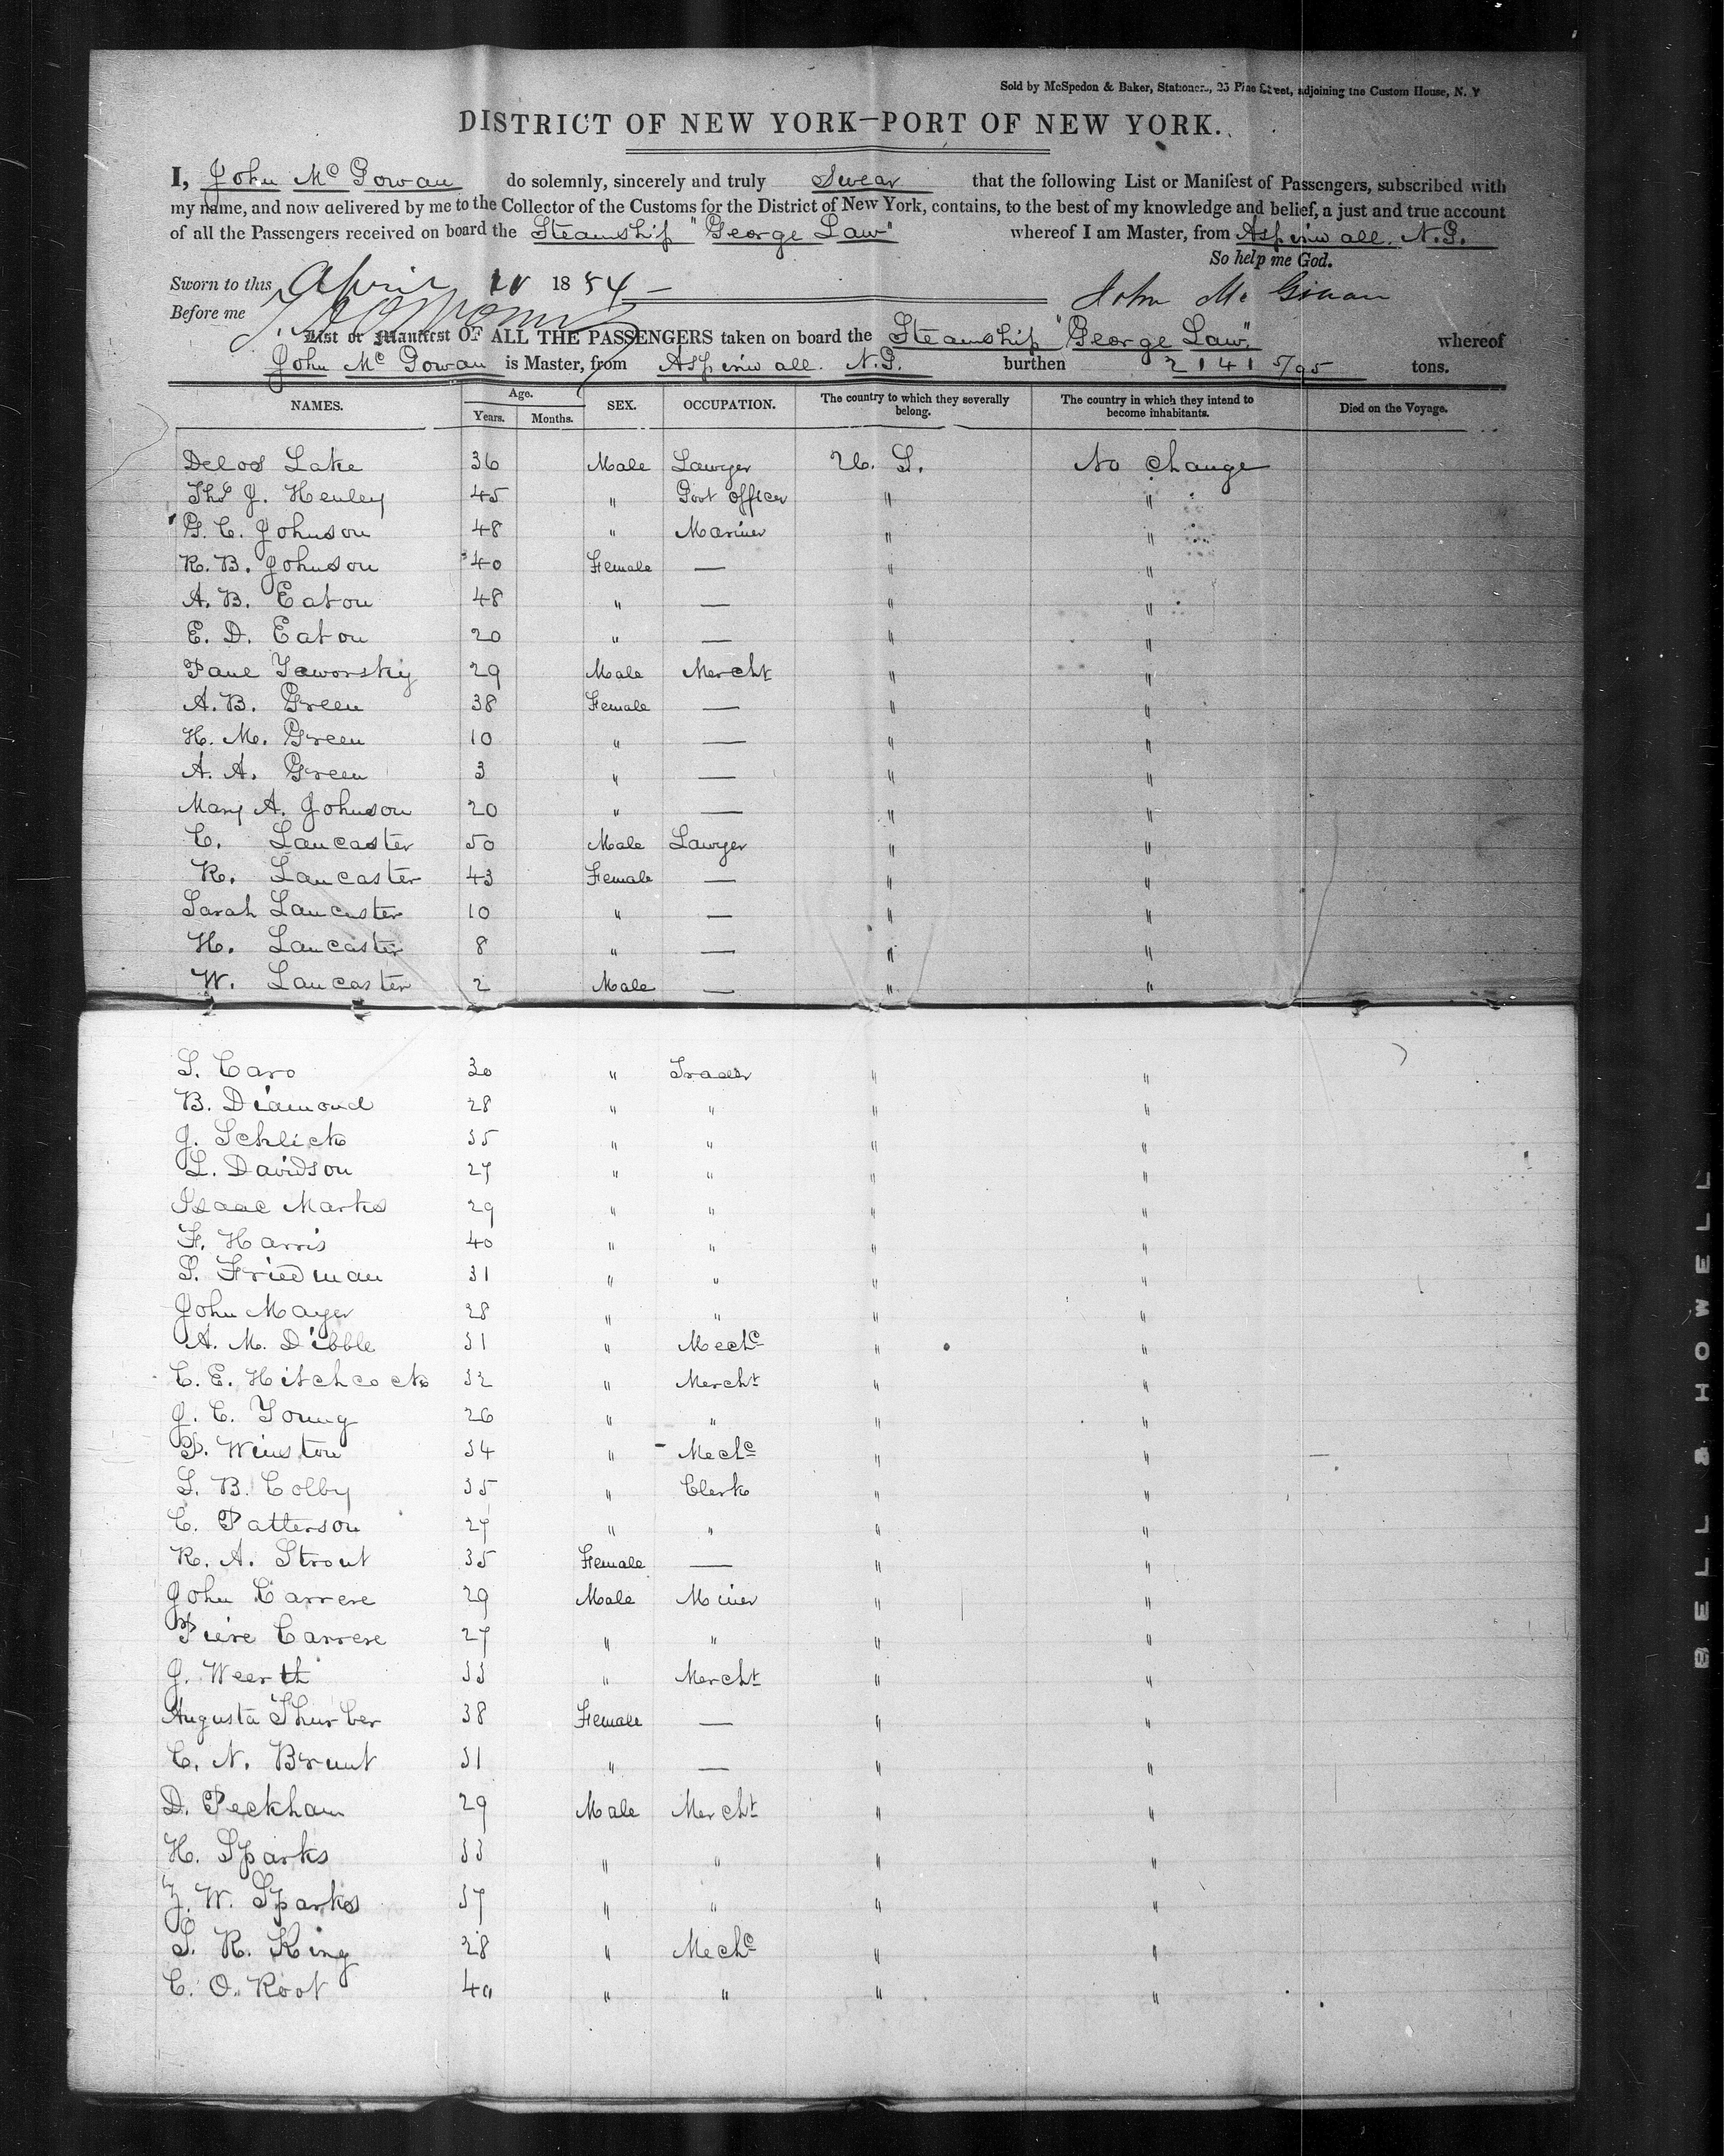 Sold by McSpedon & Baker, Stationers, 25 Pine Street, adjoining the Custom House, N. Y
DISTRICT OF NEW YORK—PORT OF NEW YORK.
I, John Mc Gowan do solemnly, sincerely and truly Swear that the following List or Manifest of Passengers, subscribed with
my name, and now delivered by me to the Collector of the Customs for the District of New York, contains, to the best of my knowledge and belief, a just and true account
of all the Passengers received on board the Steamship "George Law" whereof I am Master, from Aspinwall. N.G.
So help me God.
Sworn to this April 10 1854 John Mc Gowan
Before me
List or Manifest OF ALL THE PASSENGERS taken on board the Steamship "George Law" whereof
John Mc Gowan is Master, from Aspinwall. N.G. burthen 2141 5/95 tons.
NAMES. Age. Years. Months. SEX. OCCUPATION. The country to which they severally belong. The country in which they intend to become inhabitants. Died on the Voyage.
Delos Lake 36 Male Lawyer U. S. No change
Thos J. Henley 45 " Govt officer " "
G. C. Johnson 48 " Mariner " "
R. B. Johnson 40 Female — " "
A. B. Eaton 48 " — " "
E. D. Eaton 20 " — " "
Paul Jaworsky 29 Male Mercht " "
A. B. Green 38 Female — " "
H. M. Green 10 " — " "
A. A. Green 3 " — " "
Mary A. Johnson 20 " — " "
C. Lancaster 50 Male Lawyer " "
R. Lancaster 43 Female — " "
Sarah Lancaster 10 " — " "
H. Lancaster 8 " — " "
W. Lancaster 2 Male — " "
S. Caro 30 " Trader " "
B. Diamond 28 " " " "
J. Schlick 35 " " " "
L. Davidson 27 " " " "
Isaac Marks 29 " " " "
F. Harris 40 " " " "
S. Friedman 31 " " " "
John Mayer 28 " " " "
A. M. Dibble 31 " Mechc " "
C. E. Hitchcock 32 " Mercht " "
J. C. Young 26 " " " "
P. Winston 34 " Mechc " "
S. B. Colby 35 " Clerk " "
C. Patterson 27 " " " "
R. A. Strout 35 Female — " "
John Carrere 29 Male Miner " "
Piere Carrere 27 " " " "
J. Weerth 33 " Mercht " "
Augusta Thurber 38 Female — " "
C. N. Brunt 31 " — " "
D. Peckham 29 Male Mercht " "
H. Sparks 33 " " " "
Z. W. Sparks 37 " " " "
S. R. King 28 " Mechc " "
C. O. Root 40 " " " "
BELL & HOWELL